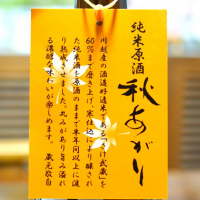 純米原酒
秋あがり
川越産の酒造好適米である「さけ武蔵」を
60%まで磨き上げ、寒仕込により醸され
た純米酒を原酒のままで半年間以上に渡
り熟成させました。丸みがあり旨み溢れ
る濃醇な味わいが楽しめます。 蔵元敬白